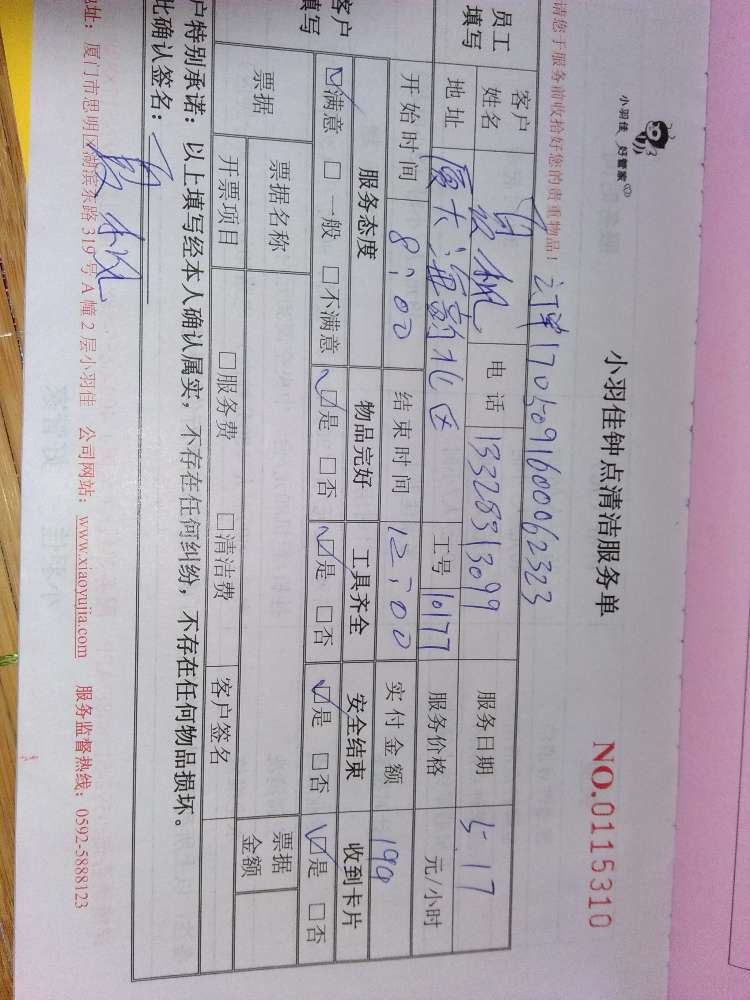 小羽佳 好管家
小羽佳钟点清洁服务单
NO.0115310
请您于服务前收拾好您的贵重物品!
订单1705091600062323
员工填写
客户姓名
电话 13328313099
服务日期 5.17
地址 厦大海韵北区
工号 10177
服务价格 元/小时
开始时间 8:00
结束时间 12:00
实付金额 199
客户填写
服务态度 物品完好 工具齐全 安全结束 收到卡片
☑满意 □一般 □不满意 ☑是 □否 ☑是 □否 ☑是 □否 ☑是 □否
票据 票据名称 票据金额
票据 开票项目 □服务费 □清洁费 客户签名
户特别承诺:以上填写经本人确认属实,不存在任何纠纷,不存在任何物品损坏。
此确认签名:
地址:厦门市思明区湖滨东路 319 号 A 幢 2 层小羽佳 公司网站:www.xiaoyujia.com 服务监督热线:0592-5888123